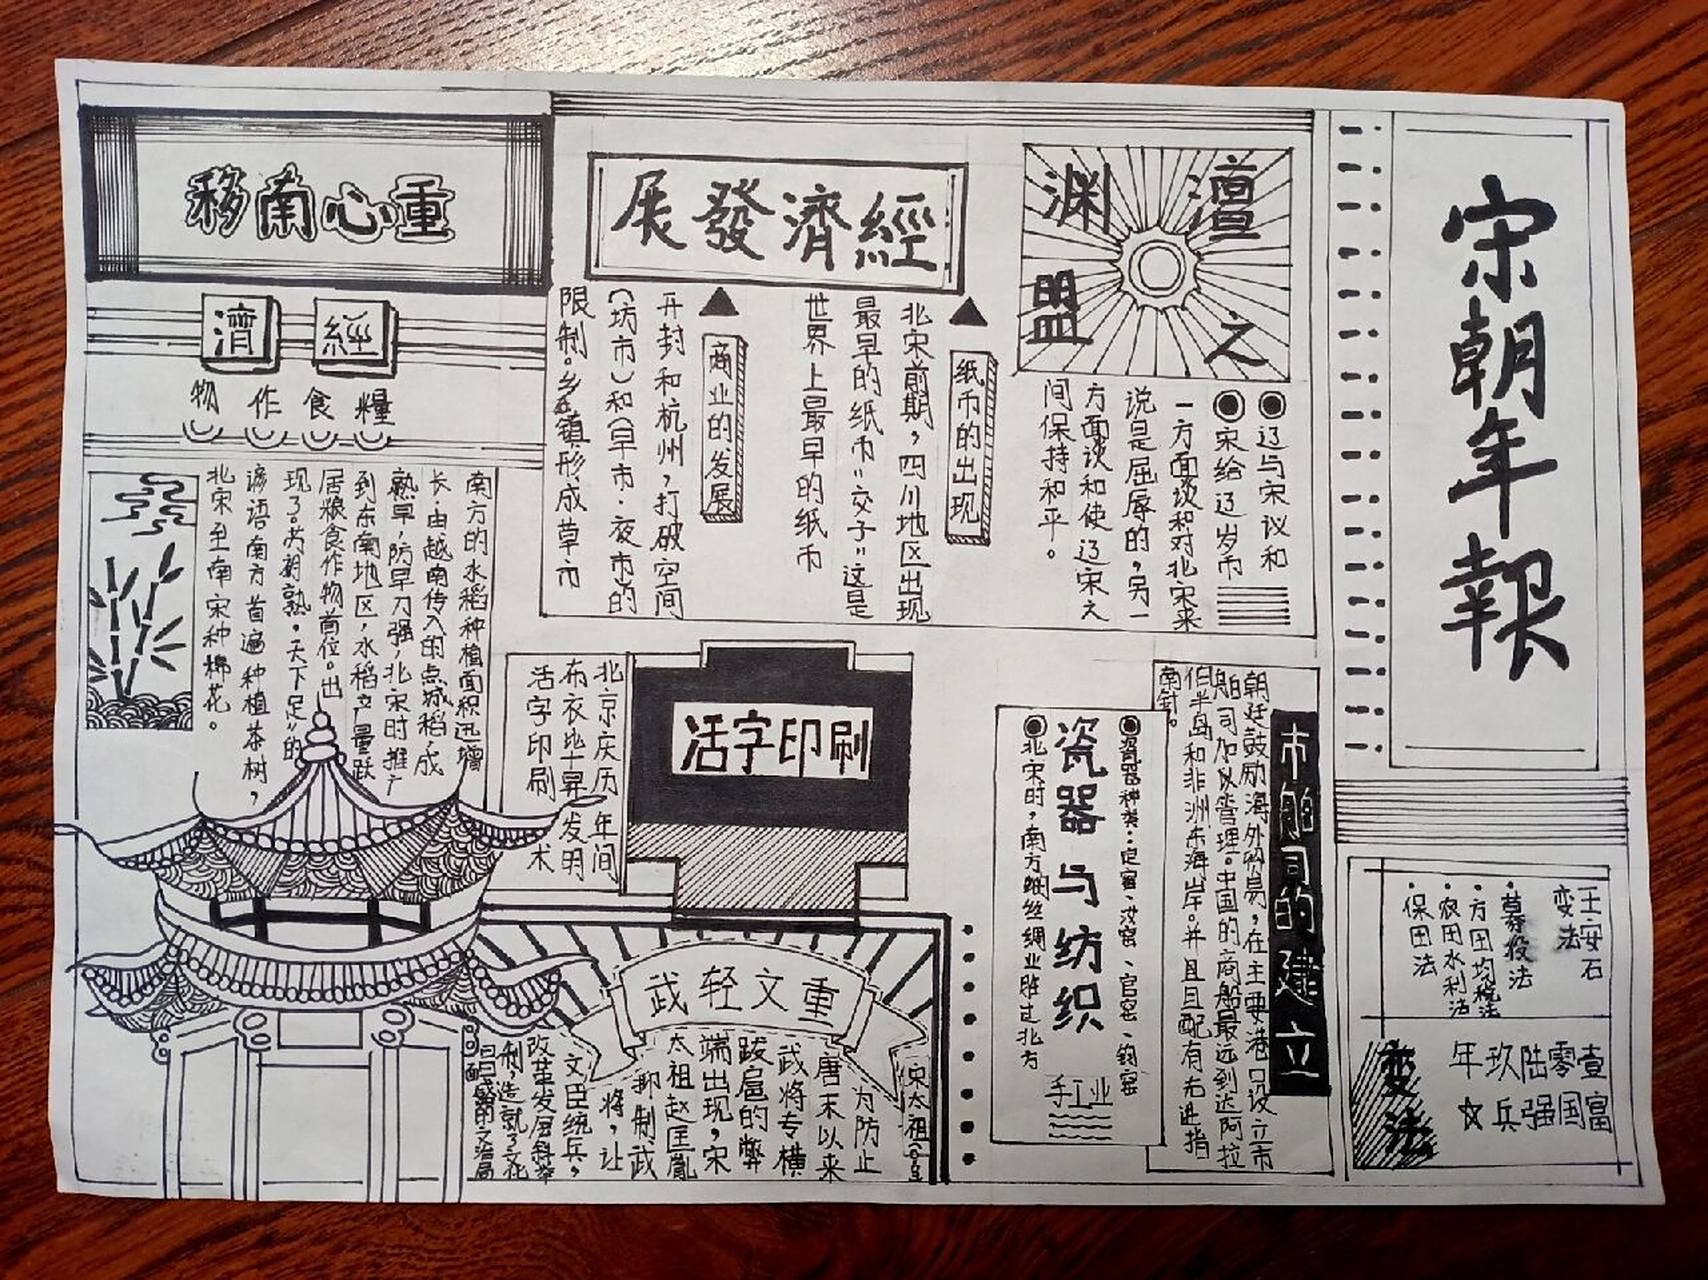 宋朝年報
王安石
变法
募役法
方田均税法
农田水利法
保田法
壹零陆玖年
富国强兵
变法
澶渊之盟
辽与宋议和
宋给辽岁币
一方面谈和对北宋来
说是屈辱的，另一
方面谈和使辽宋之
间保持和平。
經濟發展
纸币的出现
北宋前期，四川地区出现
最早的纸币“交子”这是
世界上最早的纸币
商业的发展
开封和杭州，打破空间
(坊市)和(早市·夜市的
限制。乡镇形成草市
重心南移
經濟
糧食作物
南方的水稻种植面积迅增
长·由越南传入的点城稻，成
熟早，防旱力强，北宋时推广
到东南地区，水稻产量跃
居粮食作物首位。出
现了“苏湖熟，天下足”的
谚语南方首遍种植茶树，
北宋至南宋种棉花。
市舶司的建立
朝廷鼓励海外贸易，在主要港口设立市
舶司加以管理。中国的商船最远到达阿拉
伯半岛和非洲东海岸。并且配有先进指
南针。
瓷器种类：定窑、汝窑、官窑、钧窑
瓷器与纺织
北宋时，南方丝绸业胜过北方
手工业
活字印刷
北京庆历 年间
布衣毕昇发明
活字印刷 术
重文轻武
宋太祖
为防止
唐末以来
武将专横
跋扈的弊
端出现，宋
太祖赵匡胤
抑制武
将，让
文臣统兵，
改革发展科举
制，造就了文化
昌盛的文治局